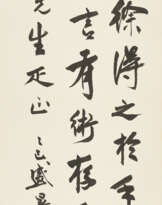 徐得之於手
言有術存
先生疋正
乙丑盛